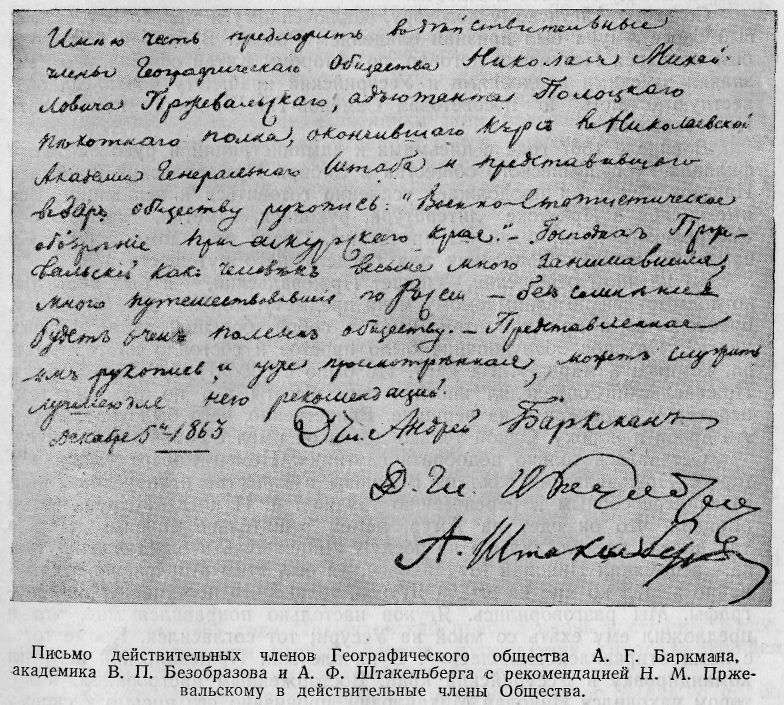 Имѣю честь предложить въ дѣйствительные
члены Географическаго Общества Николая Михай-
ловича Пржевальскаго, адъютанта Полоцкаго
пѣхотнаго полка, окончившаго курсъ въ Николаевской
Академіи Генеральнаго Штаба и представившаго
въ даръ обществу рукопись: "Военно-Статистическое
обозрѣніе Приамурскаго края". — Господинъ Прже-
вальскій какъ человѣкъ весьма много занимавшійся,
много путешествовавшій по Россіи — безъ сомнѣнія
будетъ очень полезенъ обществу. — Представленная
имъ рукопись и уже просмотрѣнная, можетъ служить
лучшею для него рекомендаціей.
Декабря 5го 1863 Д. Чл. Андрей Баркманъ
Д. Чл.
А. Штакельбергъ
Письмо действительных членов Географического общества А. Г. Баркмана,
академика В. П. Безобразова и А. Ф. Штакельберга с рекомендацией Н. М. Прже-
вальскому в действительные члены Общества.